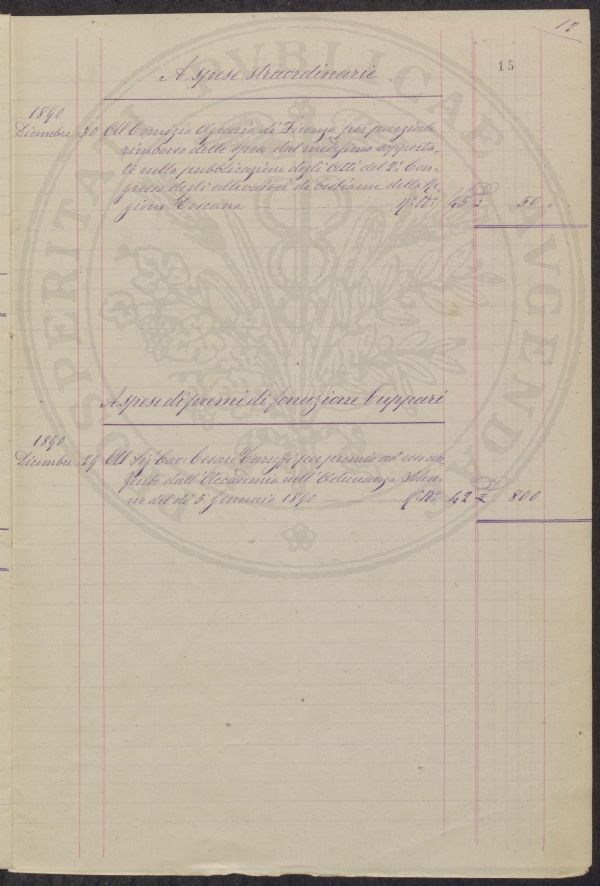 12
15
A spese straordinarie
1890
Dicembre 30 Al Comizio Agrario di Firenze per parziale
rimborso delle spese dal medesimo sopporta-
te nella pubblicazione degli Atti del 2° Con-
gresso degli allevatori di bestiame della Re-
gione Toscana 45 £ 50 "
A spese di premi di fonazione Cuppari
1890
Dicembre 29 Al Sig. Cav. Cesare Taruffi per premio ad esso con-
ferito dall'Accademia nell'Adunanza Solen-
ne del dì 5 Gennaio 1890 42 £ 800
PROSPERITATI PVBLICAE AVGENDAE